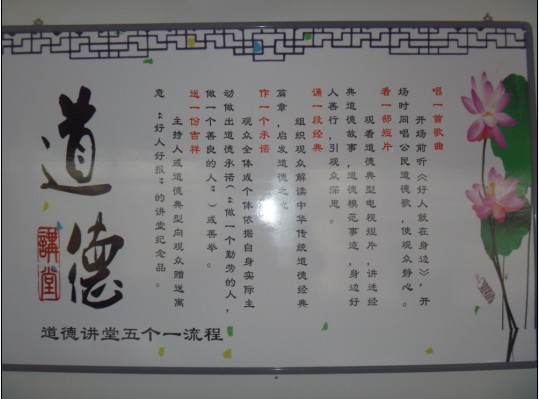 唱一首歌曲
开场前听《好人就在身边》,开
场时同唱公民道德歌,使观众静心。
看一部短片
观看道德典型电视短片,讲述经
典道德故事,道德模范事迹,身边好
人善行,引观众深思。
诵一段经典
组织观众解读中华传统道德经典
篇章,启发道德之
作一个承诺
观众全体或个体依据自身实际主
动做出道德承诺(“做一个勤劳的人,
做一个善良的人”)或善举。
送一份吉祥
主持人或道德典型向观众赠送寓
意“好人好报”的讲堂纪念品。
道德
講堂
道德讲堂五个一流程